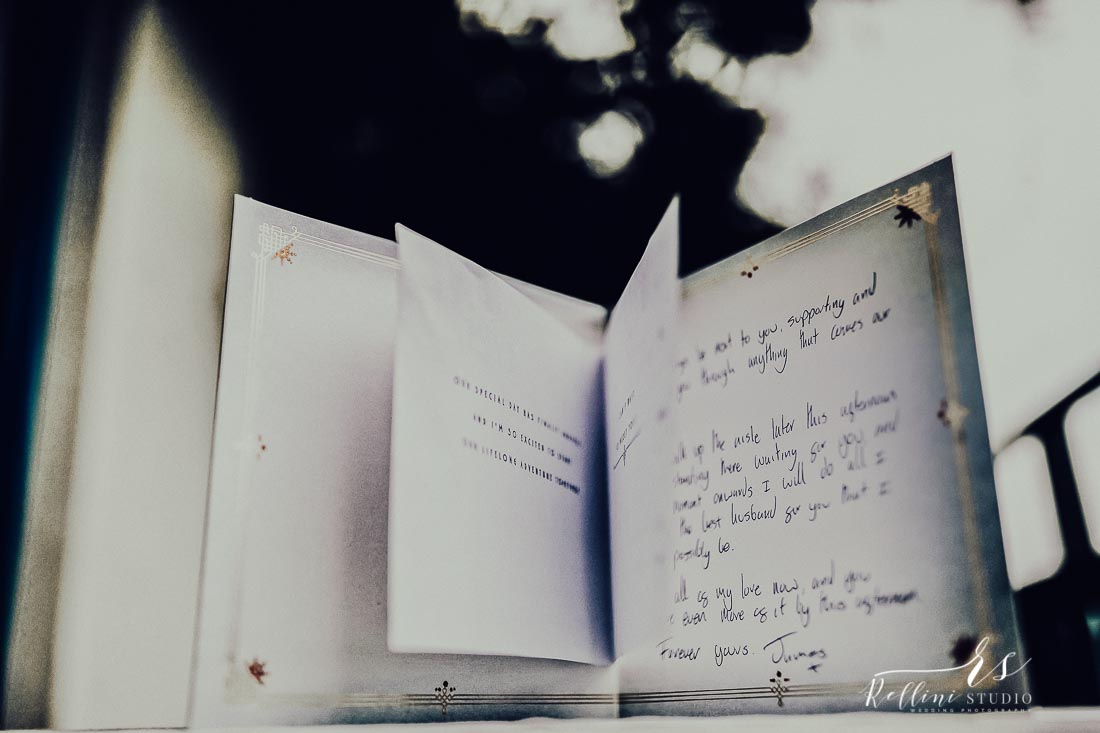 OUR SPECIAL DAY HAS FINALLY
AND I'M SO EXCITED TO START
OUR LIFELONG ADVENTURE TOGETHER
to you, supporting and
you through anything that comes our
up the aisle later this afternoon
standing there waiting for you, and
moment onwards I will do all I
the best husband for you that I
possibly be.
all of my love now, and you
even more of it by this afternoon.
Forever yours. James
x
RS
Rellini STUDIO
WEDDING PHOTOGRAPHY